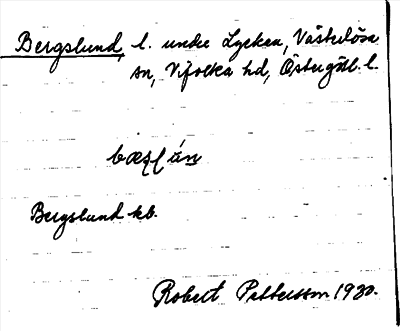 Bergslund, l. under Lyckan, Västerlösa
sn, Vifolka hd, Östergötl. l.
Bergslund kb.
Robert Pettersson 1930.